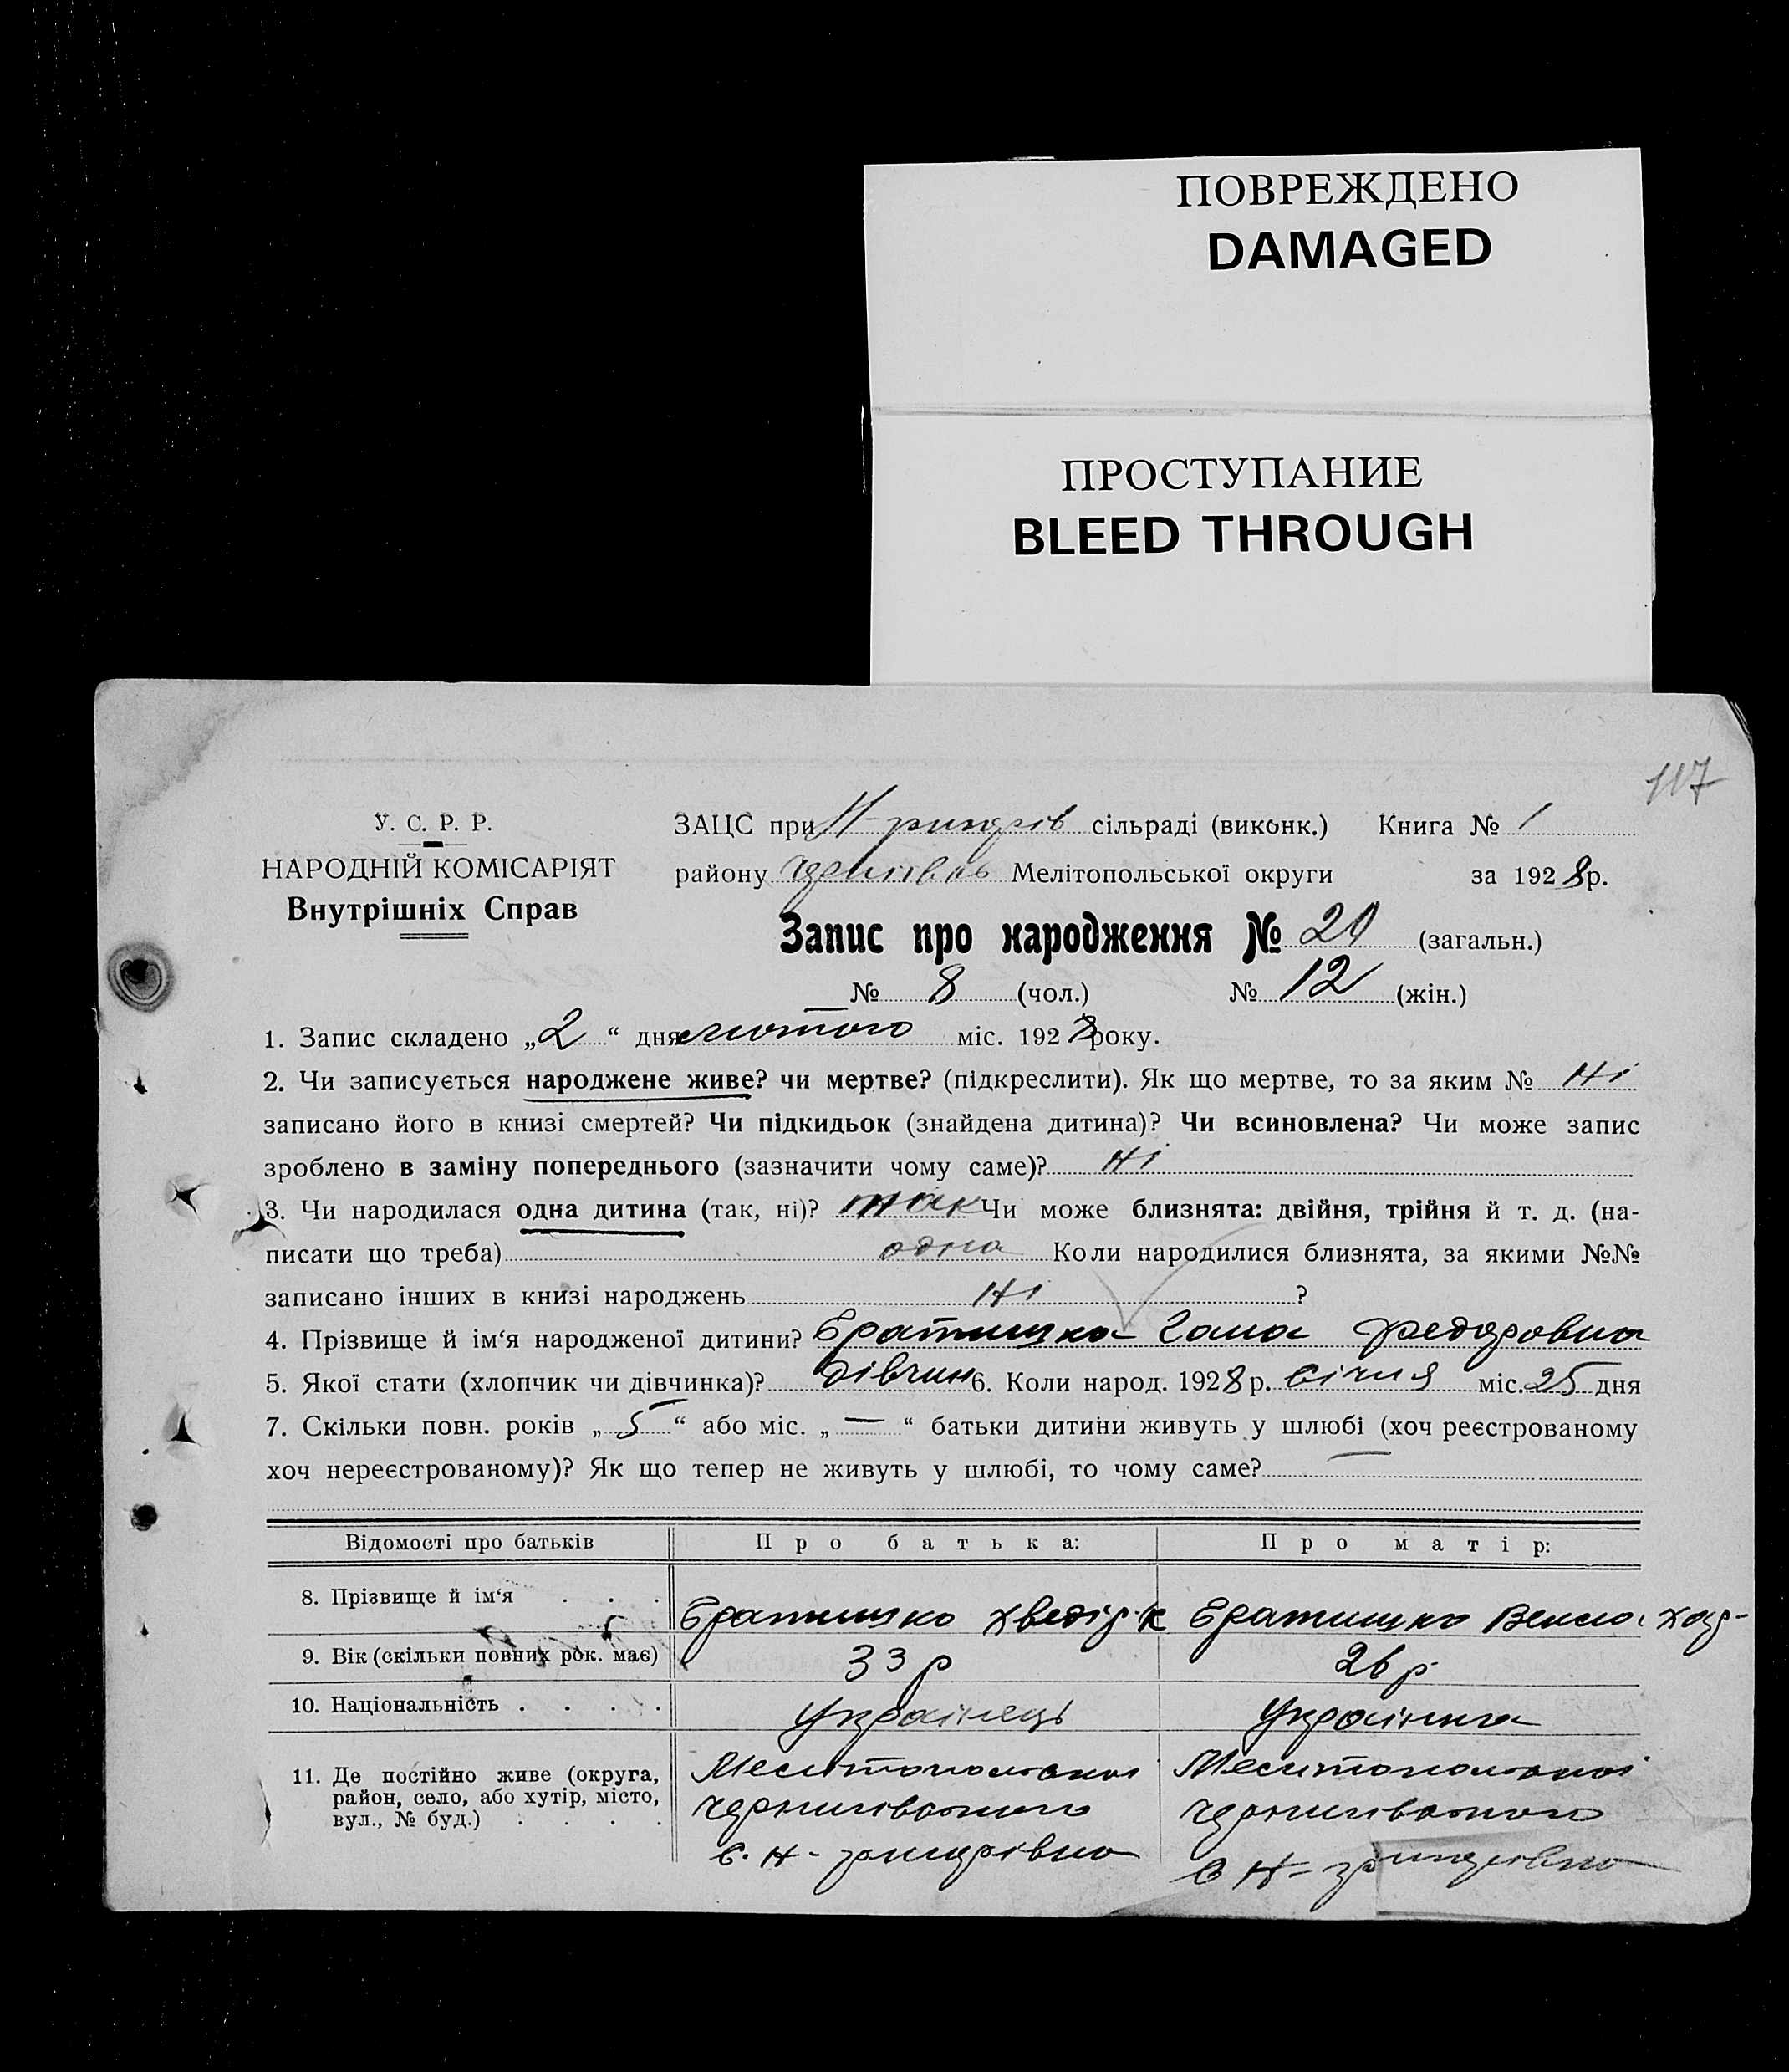 ПОВРЕЖДЕНО
DAMAGED
ПРОСТУПАНИЕ
BLEED THROUGH
117
У. С. Р. Р.
НАРОДНІЙ КОМІСАРІЯТ
Внутрішніх Справ
ЗАЦС при сільраді (виконк.) Книга № 1
району Мелітопольської округи за 1928 р.
Запис про народження № 20 (загальн.)
№ 8 (чол.) № 12 (жін.)
1. Запис складено „2“ дня лютого міс. 1928 року.
2. Чи записується народжене живе? чи мертве? (підкреслити). Як що мертве, то за яким № Ні
записано його в книзі смертей? Чи підкидьок (знайдена дитина)? Чи всиновлена? Чи може запис
зроблено в заміну попереднього (зазначити чому саме)? Ні
3. Чи народилася одна дитина (так, ні)? так Чи може близнята: двійня, трійня й т. д. (на-
писати що треба) одна Коли народилися близнята, за якими №№
записано інших в книзі народжень Ні ?
4. Прізвище й ім‘я народженої дитини? Братишко Гана Федоровна
5. Якої стати (хлопчик чи дівчинка)? дівчин 6. Коли народ. 1928 р. січня міс. 25 дня
7. Скільки повн. років „5“ або міс. „—“ батьки дитини живуть у шлюбі (хоч реєстрованому
хоч нереєстрованому)? Як що тепер не живуть у шлюбі, то чому саме? —
Відомості про батьків Про батька: Про матір:
8. Прізвище й ім‘я . . . Братишко Хведір К Братишко
9. Вік (скільки повних рок. має) 33 р 26 р
10. Національність . . . . Українець Українка
11. Де постійно живе (округа, Мелитопольської Мелитопольської
район, село, або хутір, місто, Чернигівського Чернигівського
вул., № буд.) . . . . с. Н- с Н-